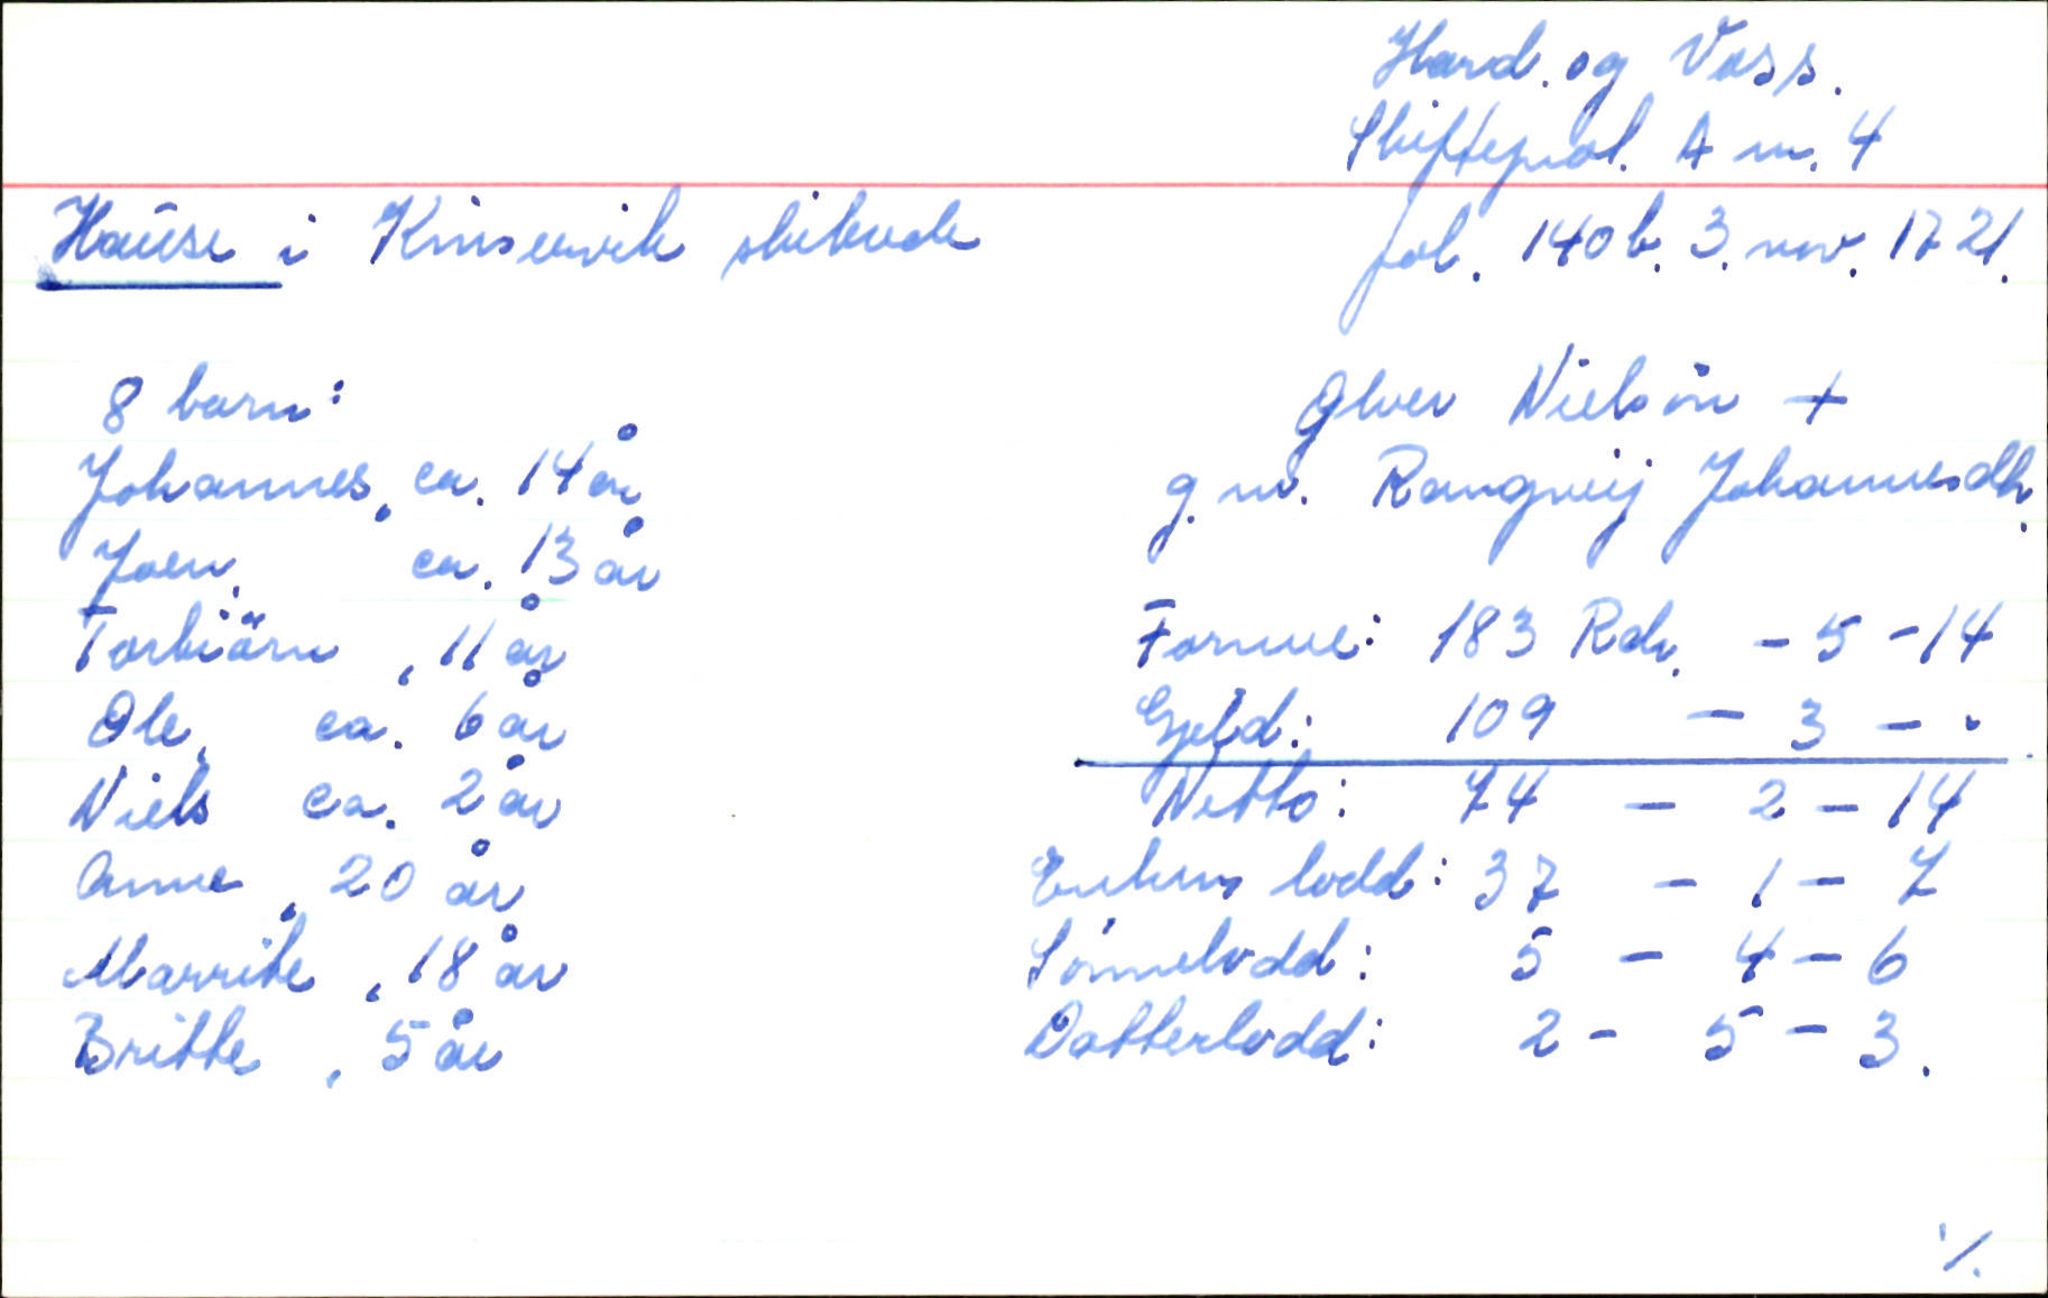 Hard. og Voss.
Skifteprot. A nr. 4
Hause i Kinservik skibrede
fol. 140b. 3. nov. 1721.
8 barn:
Johannes, ca. 14 år
Joen, ca. 13 år
Torbiörn, 11 år
Ole, ca. 6 år
Niels ca. 2 år
Anne, 20 år
Marrite, 18 år
Britte, 5 år
Glver Nielsön +
g. m. Rangveij Johannesdtr.
Formue: 183 Rdr. - 5 - 14
Gjeld: 109 - 3 - "
Netto: 74 - 2 - 14
Enkens lodd: 37 - 1 - 7
Sönnelodd: 5 - 4 - 6
Datterlodd: 2 - 5 - 3.